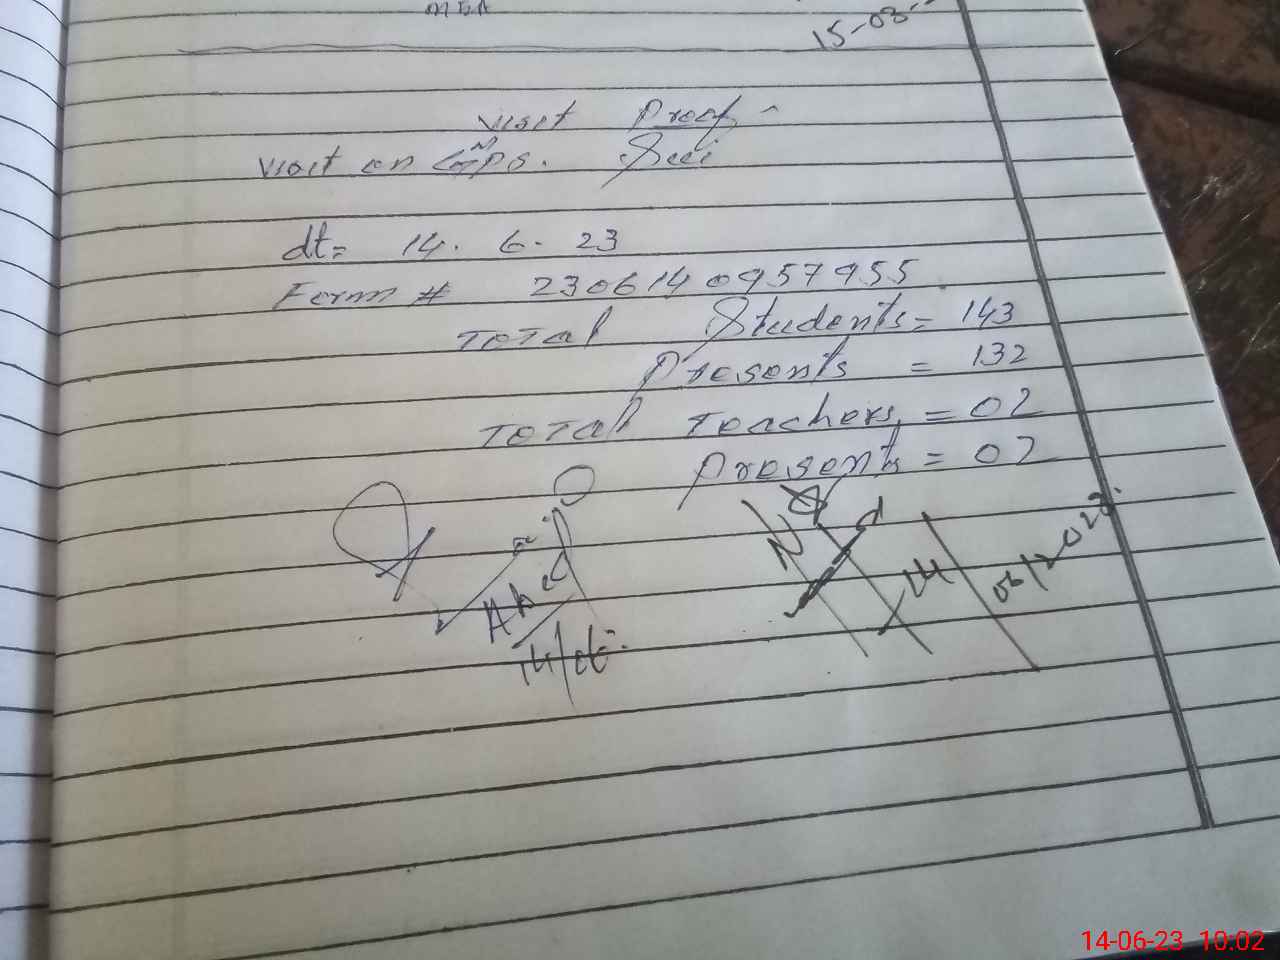 MEA
15-03-
Visit Proof
Visit on GMPS. Suii
dt= 14. 6. 23
Form # 230614 0957955
Total Students = 143
Presents = 132
Total Teachers = 02
Presents = 02
14/06
14/06/2023
14-06-23 10:02